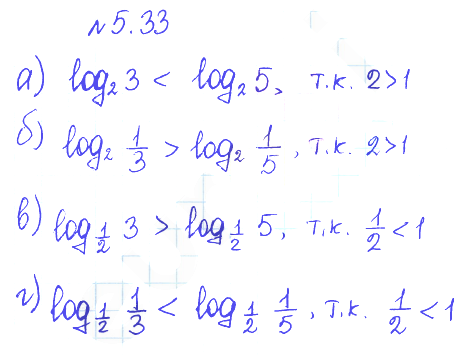 №5.33
а) log₂ 3 < log₂ 5, т.к. 2>1
б) log₂ 1/3 > log₂ 1/5, т.к. 2>1
в) log_{1/2} 3 > log_{1/2} 5, т.к. 1/2 < 1
г) log_{1/2} 1/3 < log_{1/2} 1/5, т.к. 1/2 < 1